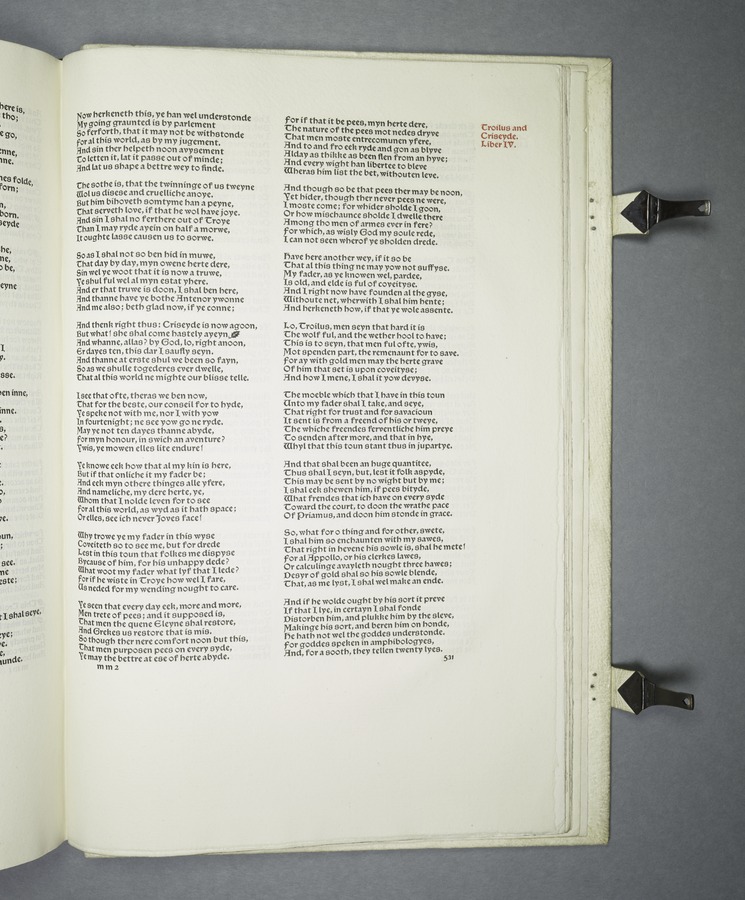 Now herkeneth this, ye han wel understonde
My going graunted is by parlement
So ferforth, that it may not be withstonde
For al this world, as by my jugement.
And sin ther helpeth noon avysement
To letten it, lat it passe out of minde;
And lat us shape a bettre wey to finde.
The sothe is, that the twinninge of us tweyne
Wol us disese and cruelliche anoye.
But him bihoveth somtyme han a peyne,
That serveth love, if that he wol have joye.
And sin I shal no ferthere out of Troye
Than I may ryde ayein on half a morwe,
It oughte lasse causen us to sorwe.
So as I shal not so ben hid in muwe,
That day by day, myn owene herte dere,
Sin wel ye woot that it is now a truwe,
Ye shul ful wel al myn estat yhere.
And er that truwe is doon, I shal ben here,
And thanne have ye bothe Antenor ywonne
And me also; beth glad now, if ye conne;
And thenk right thus: Criseyde is now agoon,
But what! she shal come hastely ayeyn,
And whanne, allas? by God, lo, right anoon,
Er dayes ten, this dar I saufly seyn.
And thanne at erste shul we been so fayn,
So as we shulle togederes ever dwelle,
That al this world ne mighte our blisse telle.
I see that ofte, theras we ben now,
That for the beste, our conseil for to hyde,
Ye speke not with me, nor I with yow
In fourtenight; ne see yow go ne ryde.
May ye not ten dayes thanne abyde,
For myn honour, in swich an aventure?
Ywis, ye mowen elles lite endure!
Ye knowe eek how that al my kin is here,
But if that onliche it my fader be;
And eek myn othere thinges alle yfere,
And nameliche, my dere herte, ye,
Whom that I nolde leven for to see
For al this world, as wyd as it hath space;
Or elles, see ich never Joves face!
Why trowe ye my fader in this wyse
Coveiteth so to see me, but for drede
Lest in this toun that folkes me dispyse
Bycause of him, for his unhappy dede?
What woot my fader what lyf that I lede?
For if he wiste in Troye how wel I fare,
Us neded for my wending nought to care.
Ye seen that every day eek, more and more,
Men trete of pees; and it supposed is,
That men the quene Eleyne shal restore,
And Grekes us restore that is mis.
So though ther nere comfort noon but this,
That men purposen pees on every syde,
Ye may the bettre at ese of herte abyde.
m m 2
For if that it be pees, myn herte dere,
The nature of the pees mot nedes dryve
That men moste entrecomunen yfere,
And to and fro eek ryde and gon as blyve
Alday as thikke as been flen from an hyve;
And every wight han libertee to bleve
Wheras him list the bet, withouten leve.
And though so be that pees ther may be noon,
Yet hider, though ther never pees ne were,
I moste come; for whider sholde I goon,
Or how mischaunce sholde I dwelle there
Among tho men of armes ever in fere?
For which, as wisly God my soule rede,
I can not seen wherof ye sholden drede.
Have here another wey, if it so be
That al this thing ne may yow not suffyse.
My fader, as ye knowen wel, pardee,
Is old, and elde is ful of coveityse.
And I right now have founden al the gyse,
Withoute net, wherwith I shal him hente;
And herkeneth how, if that ye wole assente.
Lo, Troilus, men seyn that hard it is
The wolf ful, and the wether hool to have;
This is to seyn, that men ful ofte, ywis,
Mot spenden part, the remenaunt for to save.
For ay with gold men may the herte grave
Of him that set is upon coveityse;
And how I mene, I shal it yow devyse.
The moeble which that I have in this toun
Unto my fader shal I take, and seye,
That right for trust and for savacioun
It sent is from a freend of his or tweye,
The whiche freendes ferventliche him preye
To senden after more, and that in hye,
Whyl that this toun stant thus in jupartye.
And that shal been an huge quantitee,
Thus shal I seyn, but, lest it folk aspyde,
This may be sent by no wight but by me;
I shal eek shewen him, if pees bityde,
What frendes that ich have on every syde
Toward the court, to doon the wrathe pace
Of Priamus, and doon him stonde in grace.
So, what for o thing and for other, swete,
I shal him so enchaunten with my sawes,
That right in hevene his sowle is, shal he mete!
For al Appollo, or his clerkes lawes,
Or calculinge avayleth nought three hawes;
Desyr of gold shal so his sowle blende,
That, as me lyst, I shal wel make an ende.
And if he wolde ought by his sort it preve
If that I lye, in certayn I shal fonde
Distorben him, and plukke him by the sleve,
Makinge his sort, and beren him on honde,
He hath not wel the goddes understonde.
For goddes speken in amphibologyes,
And, for a sooth, they tellen twenty lyes.
531
Troilus and
Criseyde.
Liber IV.